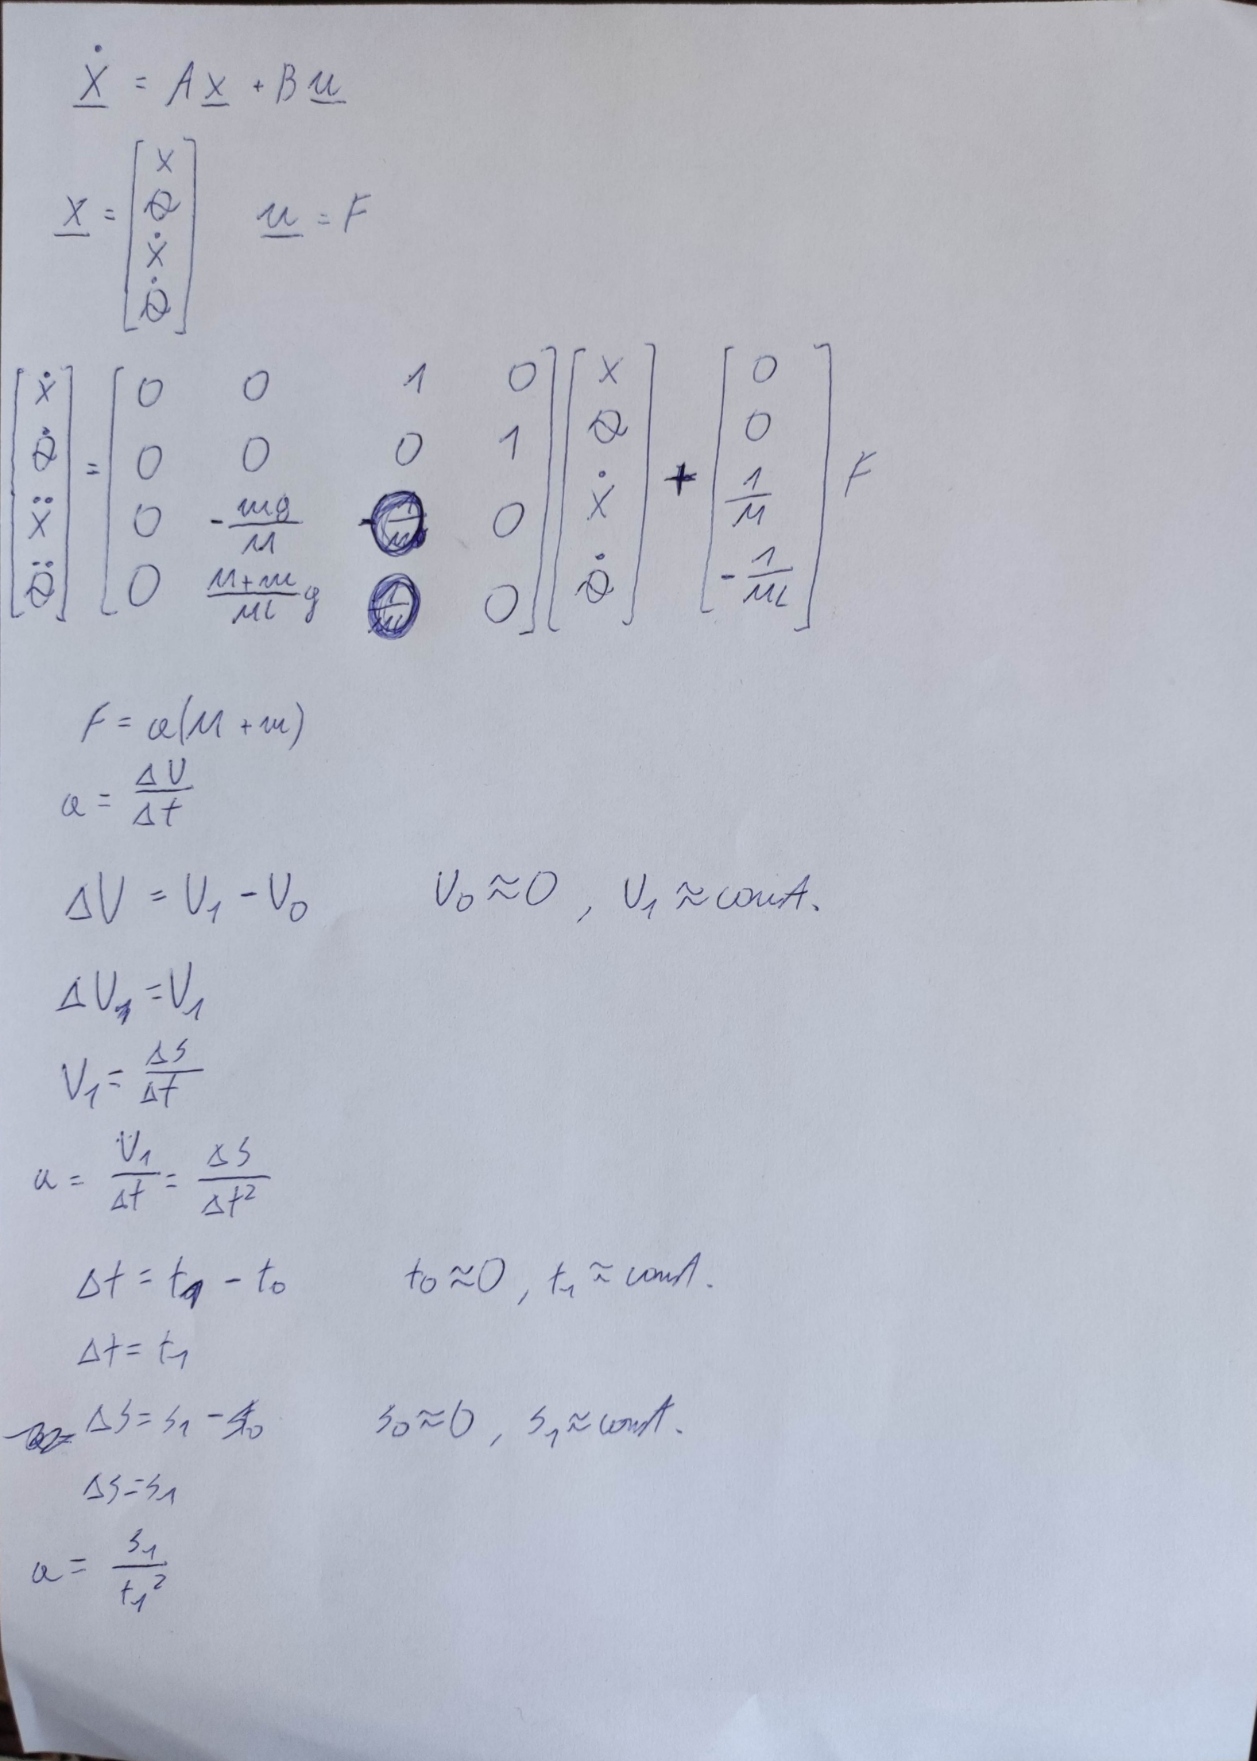 Ẋ = Ax + Bu
x = [x θ ẋ θ̇] u = F
[ẋ θ̇ ẍ θ̈] = [0 0 1 0; 0 0 0 1; 0 -mg/M 0; 0 (M+m)/ML g 0] [x θ ẋ θ̇] + [0 0 1/M -1/ML] F
F = a(M+m)
a = ΔV/Δt
ΔV = V₁ - V₀ V₀ ≈ 0, V₁ ≈ const.
ΔV₁ = V₁
V₁ = Δs/Δt
a = V₁/Δt = Δs/Δt²
Δt = t₁ - t₀ t₀ ≈ 0, t₁ ≈ const.
Δt = t₁
Δs = s₁ - s₀ s₀ ≈ 0, s₁ ≈ const.
Δs = s₁
a = s₁/t₁²